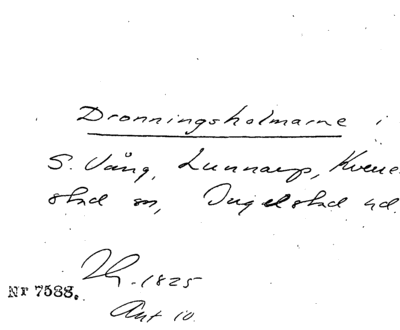 Dronningsholmarne i
S. Vång, Lunnarp, Kverre-
stad sn, Ingelstad hd.
Th. 1825
Nr 7588.
Ant 10.